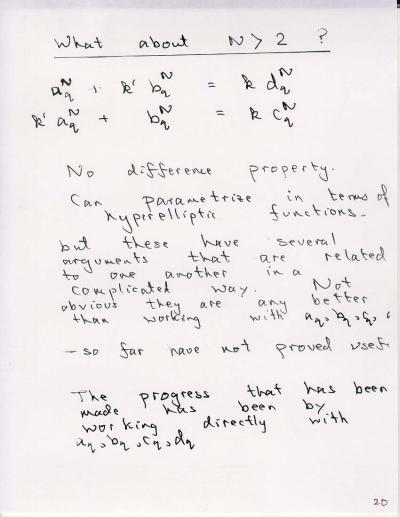 What about N > 2 ?
a_q^N + k' b_q^N = k d_q^N
k' a_q^N + b_q^N = k c_q^N
No difference property.
Can parametrize in terms of
hyperelliptic functions.
but these have several
arguments that are related
to one another in a
complicated way. Not
obvious they are any better
than working with a_q, b_q, c_q,
- so far have not proved usef
The progress that has been
made has been by
working directly with
a_q, b_q, c_q, d_q
20